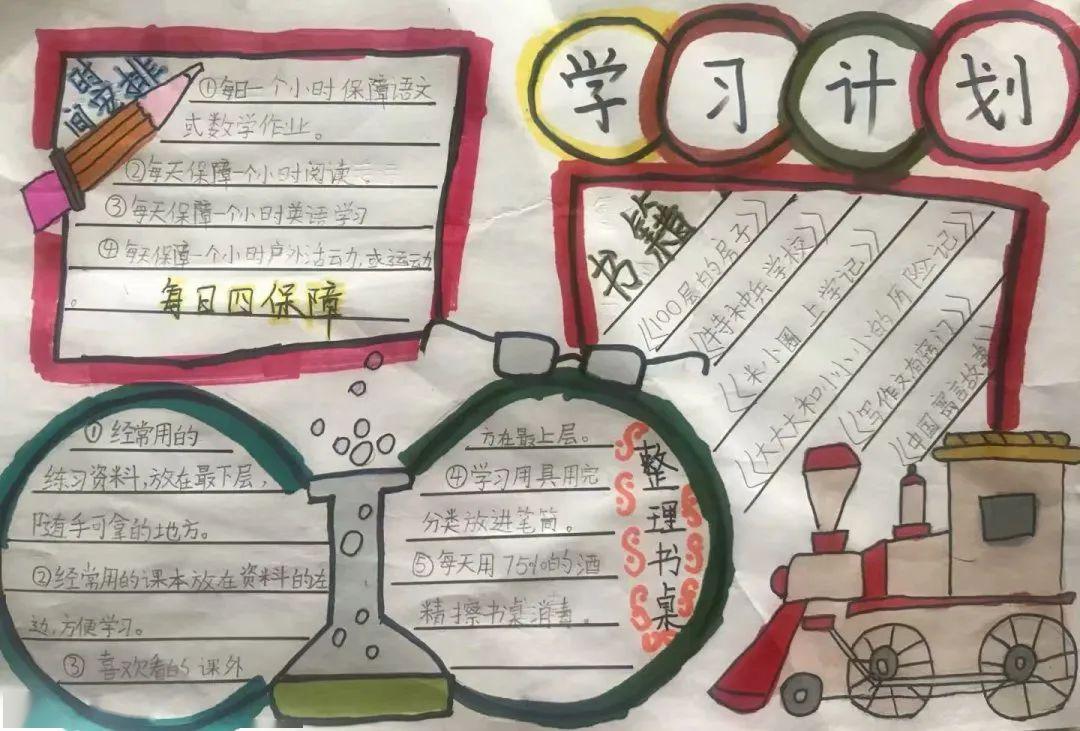 学习计划
①每日一个小时保障语文
或数学作业。
②每天保障一个小时阅读。
③每天保障一个小时英语学习
④每天保障一个小时户外活动,或运动
。
每日四保障
书籍
《100层的房子》
《特种兵学校》
《米小圈上学记》
《大大大和小小小的历险记》
《写作文有窍门》
《中国寓言故事》
①经常用的
练习资料,放在最下层,
随手可拿的地方。
②经常用的课本放在资料的左
边,方便学习。
③喜欢看的课外
方在最上层。
④学习用具用完
分类放进笔筒。
⑤每天用75%的酒
精擦书桌消毒。
整理书桌